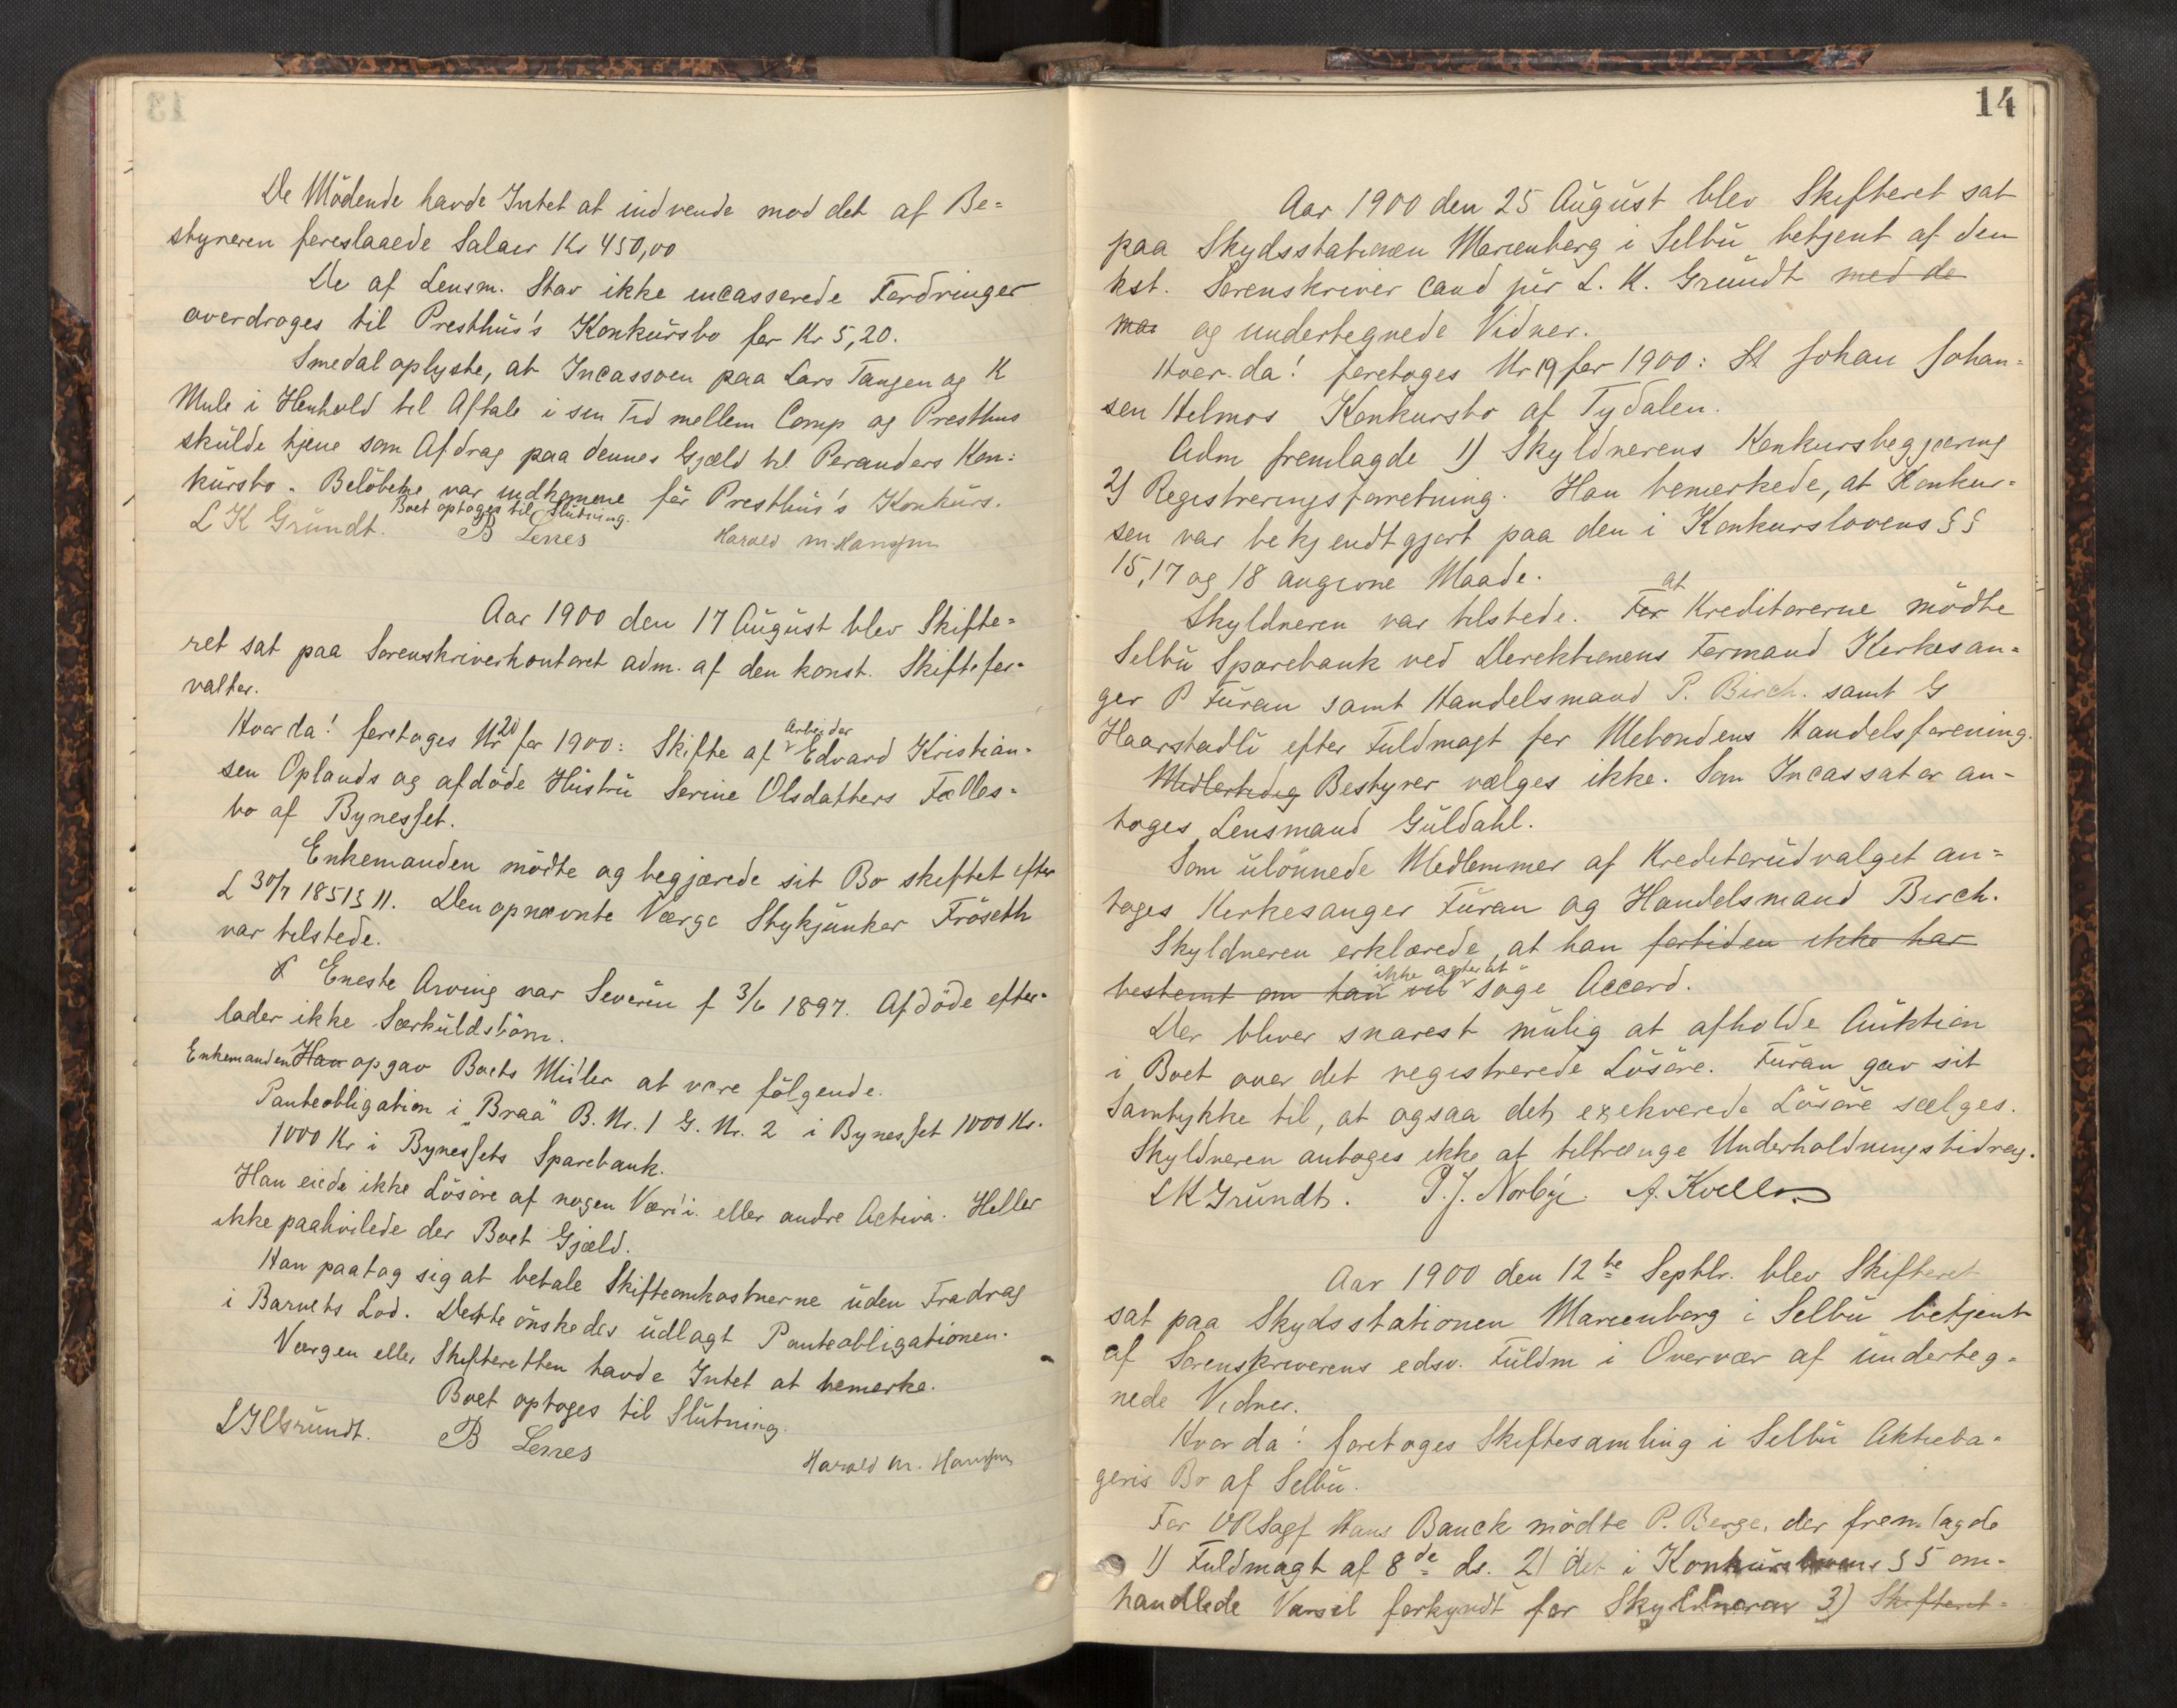 De Mödende havde Intet at indvende mod det af Be=
styreren foreslaaede Salær Kr 450,00
De af Lensm. Stav ikke incasserede Fordringer
overdrages til Presthus's Konkursbo for Kr 5,20.
Smedal oplyste, at Incassoen paa Lars Tangen og K
Mule i Henhold til Aftale i sin Tid mellem Comp og Presthus
skulde tjene som Afdrag paa dennes Gjæld til Peranders Kon=
kursbo. Belöbene var indkomne för Presthus's Konkurs.
Boet optages til Slutning.
L K Grundt. B Lenes Harald M. Hansen
Aar 1900 den 17 August blev Skifte=
ret sat paa Sorenskriverkontoret adm. af den konst. Skiftefor=
valter.
Hvor da! foretages Nr 20 for 1900: Skifte af Arbeider Edvard Kristian=
sen Oplands og afdöde Hustru Serine Olsdatters Fælles=
bo af Bynesset.
Enkemanden mödte og begjærede sit Bo skiftet efter
L 30/7 1851 § 11. Den opnævnte Værge Stykjunker Fröseth
var tilstede.
Eneste Arving var Severin f 3/6 1897. Afdöde efter=
lader ikke Særkuldsbörn.
Enkemanden Han opgav Boets Midler at være fölgende.
Panteobligation i "Braa" B. Nr. 1 G. Nr. 2 i Bynesset 1000 Kr.
1000 Kr i Bynessets Sparebank.
Han eiede ikke Lösöre af nogen Værdi eller andre Activa. Heller
ikke paahvilede der Boet Gjæld.
Han paatog sig at betale Skifteomkostnerne uden Fradrag
i Barnets Lod. Dette önskedes udlagt Panteobligationen.
Værgen eller Skifteretten havde Intet at bemerke.
Boet optages til Slutning.
L K Grundt. B Lenes Harald M. Hansen
14
Aar 1900 den 25 August blev Skifteret sat
paa Skydsstationen Marienberg i Selbu betjent af den
kst. Sorenskriver cand jur L. K. Grundt med de
ma og undertegnede Vidner.
Hvor da! foretages Nr 19 for 1900: Johan Johan=
sen Helmos Konkursbo af Tydalen.
Adm fremlagde 1) Skyldnerens Konkursbegjæring
2) Registreringsforretning. Han bemerkede, at Konkur=
sen var bekjendtgjort paa den i Konkurslovens §§
15, 17 og 18 angivne Maade.
Skyldneren var tilstede. For at Kreditorerne mödte
Selbu Sparebank ved Direktionens Formand Kirkesan=
ger P Furan samt Handelsmand P. Birch. samt G
Haarstadli efter Fuldmagt for Mebondens Handelsforening.
Midlertidig Bestyrer vælges ikke. Som Incassator an-
toges Lensmand Guldahl.
Som ulönnede Medlemmer af Kreditorudvalget an=
toges Kirkesanger Furan og Handelsmand Birch.
Skyldneren erklærede, at han fortiden ikke har
bestemt om han vil ikke agter at söge Accord.
Der bliver snarest mulig at afholde Auktion
i Boet over det registrerede Lösöre. Furan gav sit
Samtykke til, at ogsaa det exekverede Lösöre sælges.
Skyldneren antoges ikke at tiltrænge Underholdningsbidrag.
L K Grundt. P. J. Norbye. A. Kvello
Aar 1900 den 12te Septbr. blev Skifteret
sat paa Skydsstationen Marienborg i Selbu betjent
af Sorenskriverens edsv. Fuldm i Overvær af underteg=
nede Vidner.
Hvor da! foretages Skiftesamling i Selbu Aktieba=
geris Bo af Selbu.
For ORSagf Hans Bauck mödte P. Berge, der fremlagde
1) Fuldmagt af 8de ds. 2) det i Konkurslovens § 5 om=
handlede Varsel forkyndt for Skyldneren 3) Skifteret=